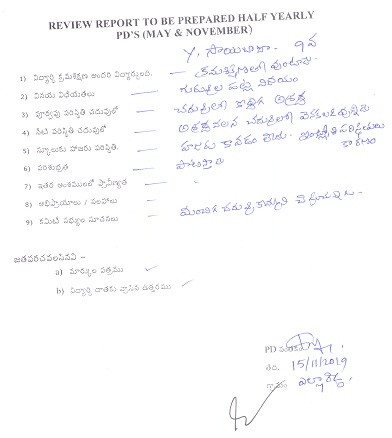 REVIEW REPORT TO BE PREPARED HALF YEARLY
PD'S (MAY & NOVEMBER)
Y. సాయిబాబా - 9వ
1) విద్యార్థి క్రమశిక్షణ అందరి విద్యార్థులది. — క్రమశిక్షణతో వుంటాడు.
2) వినయ విధేయతలు — గురువుల పట్ల వినయం
3) పూర్వపు పరిస్థితి చదువులో — చదువులో కొద్దిగా అశ్రద్ధ
4) నేటి పరిస్థితి చదువులో — అశ్రద్ధ వలన చదువులో వెనకబడివున్నాడు
5) స్కూలుకు హాజరు పరిస్థితి. — హాజరు కావడం లేదు. ఇంట్లోని పరిస్థితులు కారణం
6) పరిశుభ్రత — పాటిస్తాడు
7) ఇతర అంశములలో ప్రావీణ్యత —
8) అభిప్రాయాలు / సలహాలు —
9) కమిటీ సభ్యుల సూచనలు — మంచిగ చదువుకొమ్మని చెప్పడమైనది.
జతపరచవలసినవి :-
a) మార్కుల పత్రము
b) విద్యార్థి దాతకు వ్రాసిన ఉత్తరము
PD సంతకం
తేది. 15/11/2019
గ్రామం